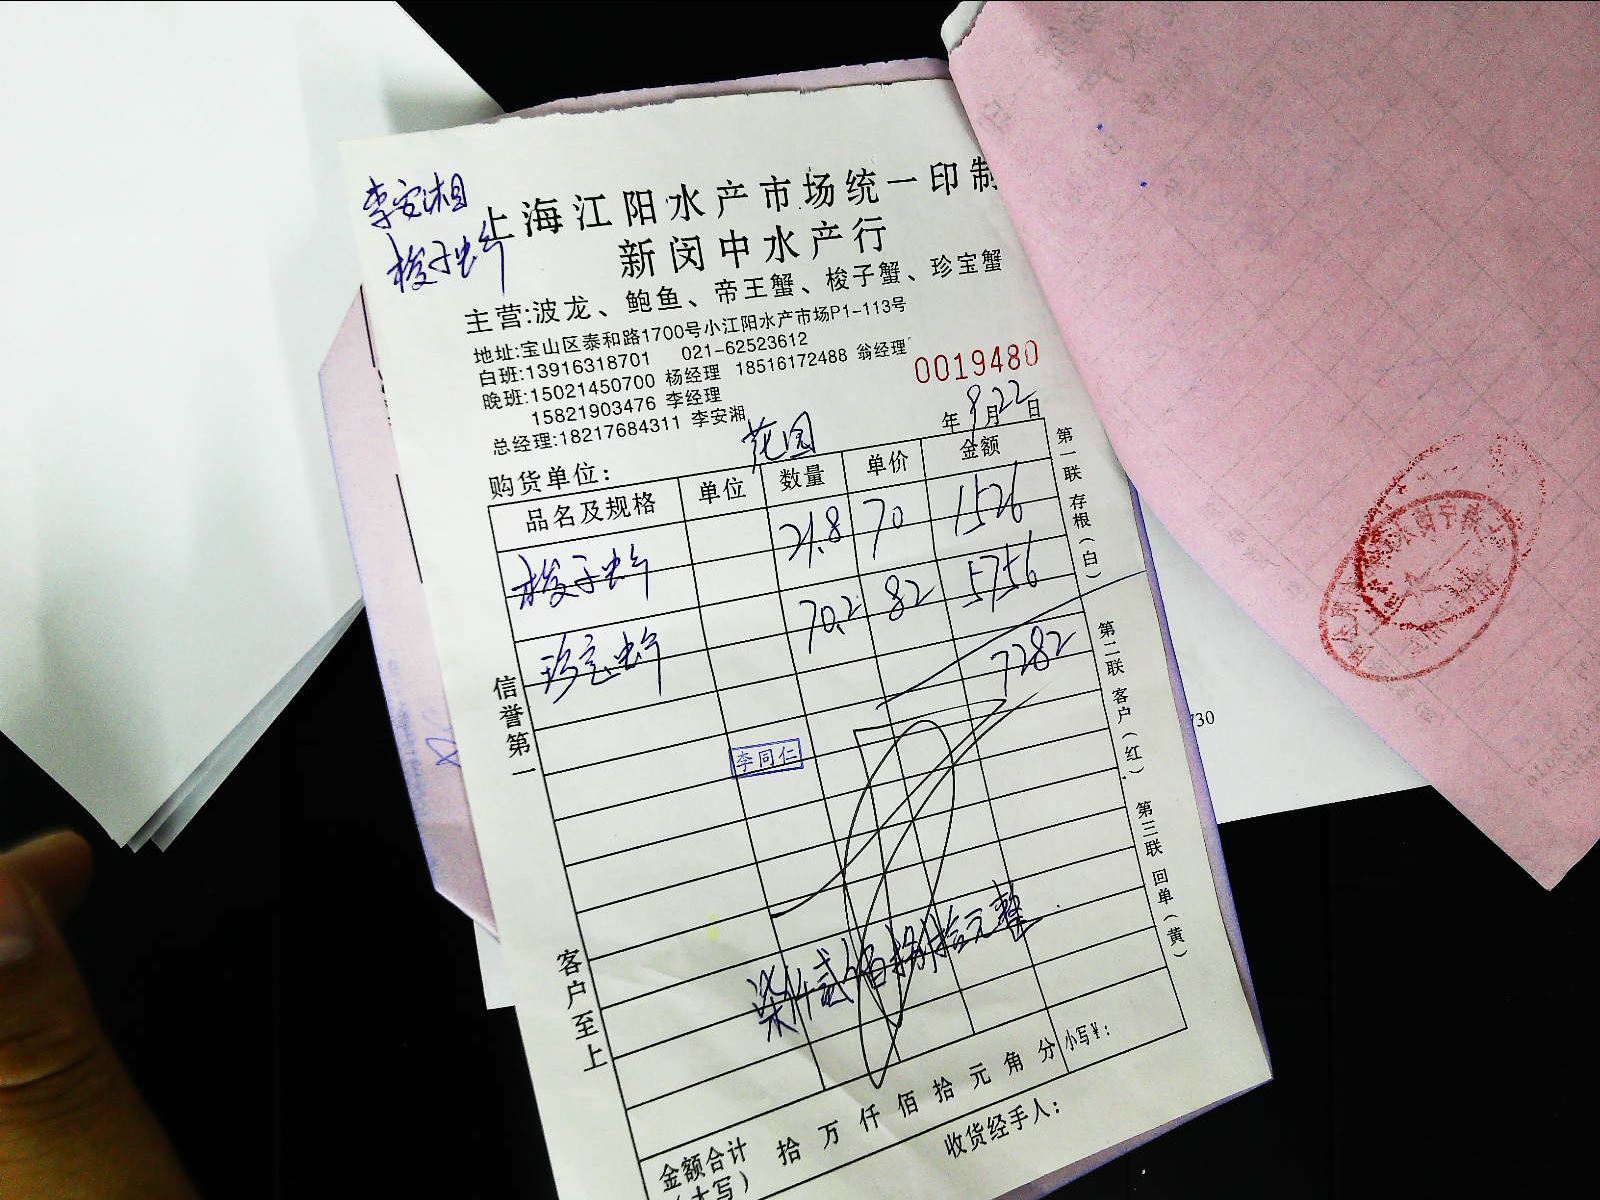 李安湘
梭子蟹
上海江阳水产市场统一印制
新闵中水产行
主营:波龙、鲍鱼、帝王蟹、梭子蟹、珍宝蟹
地址:宝山区泰和路1700号小江阳水产市场P1-113号
白班:13916318701 021-62523612
晚班:15021450700 杨经理 18516172488 翁经理
15821903476 李经理
总经理:18217684311 李安湘
0019480
年9月22日
购货单位: 花园
品名及规格 单位 数量 单价 金额
梭子蟹 21.8 70 1526
珍宝蟹 70.2 82 5756
7282
李同仁
柒仟贰佰捌拾元整
金额合计 拾 万 仟 佰 拾 元 角 分 小写¥:
(大写)
收货经手人:
信誉第一
客户至上
第一联 存根(白)
第二联 客户(红)
第三联 回单(黄)
730